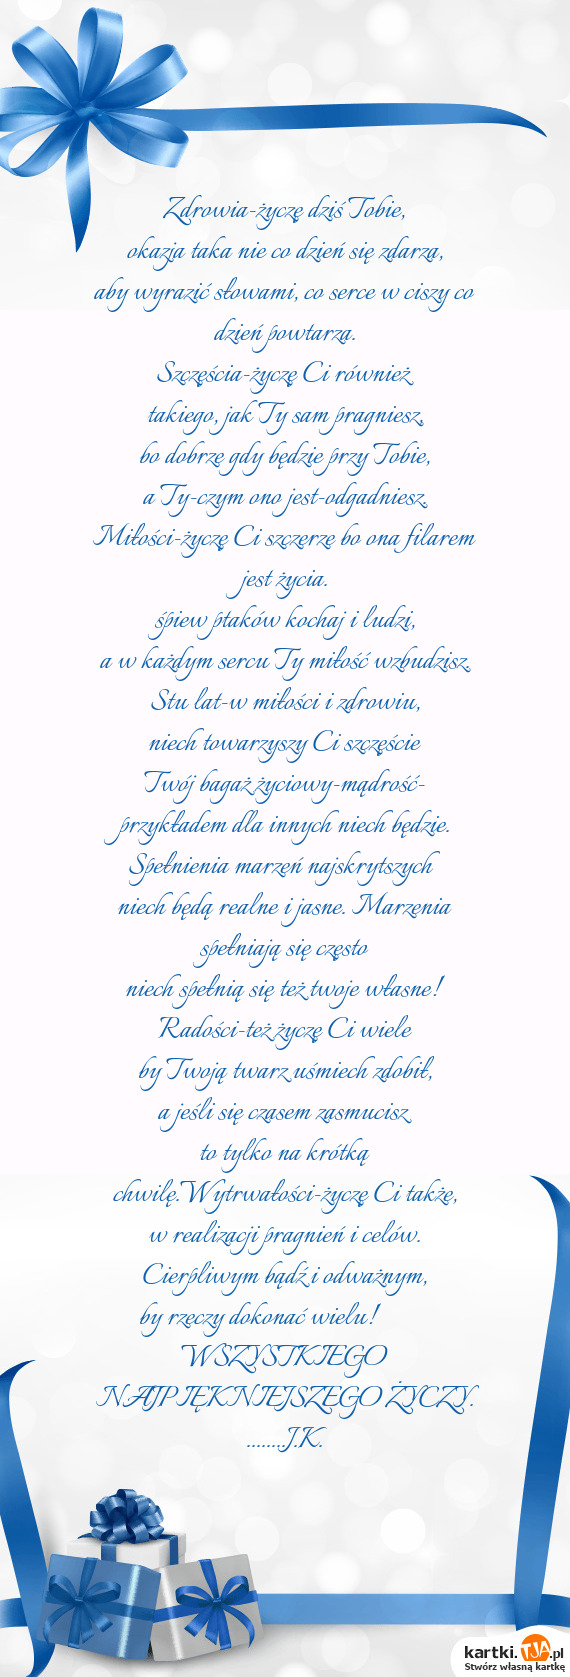 Zdrowia-życzę dziś Tobie,
okazja taka nie co dzień się zdarza,
aby wyrazić słowami, co serce w ciszy co
dzień powtarza.
Szczęścia-życzę Ci również
takiego, jak Ty sam pragniesz,
bo dobrze gdy będzie przy Tobie,
a Ty-czym ono jest-odgadniesz.
Miłości-życzę Ci szczerze bo ona filarem
jest życia.
śpiew ptaków kochaj i ludzi,
a w każdym sercu Ty miłość wzbudzisz.
Stu lat-w miłości i zdrowiu,
niech towarzyszy Ci szczęście
Twój bagaż życiowy-mądrość-
przykładem dla innych niech będzie.
Spełnienia marzeń najskrytszych
niech będą realne i jasne. Marzenia
spełniają się często
niech spełnią się też twoje własne!
Radości-też życzę Ci wiele
by Twoją twarz uśmiech zdobił,
a jeśli się czasem zasmucisz
to tylko na krótką
chwilę.Wytrwałości-życzę Ci także,
w realizacji pragnień i celów.
Cierpliwym bądź i odważnym,
by rzeczy dokonać wielu!
WSZYSTKIEGO
NAJPIĘKNIEJSZEGO ŻYCZY.
........J.K.
kartki.TJA.pl
Stwórz własną kartkę